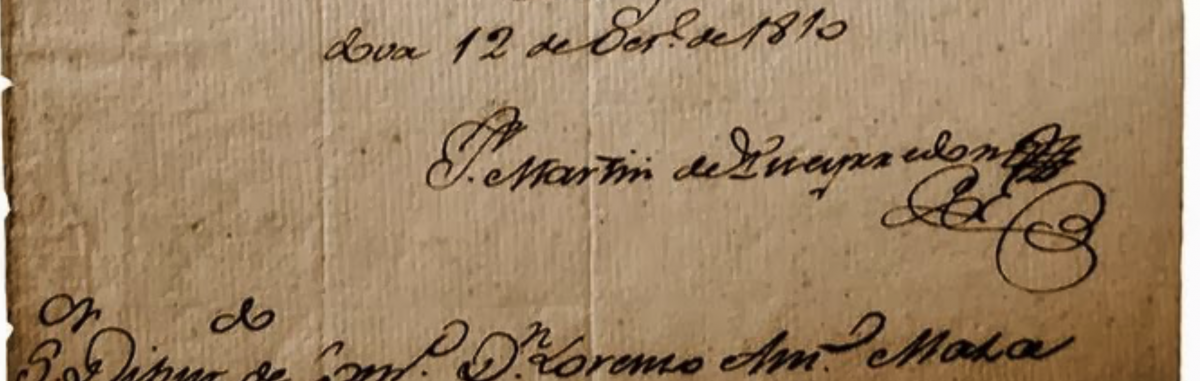 dova 12 de Oct.e de 1810
J.n Martin de Pueyrredon
or do
S. Diput de Com.o D.n Lorenzo Ant.o Maza